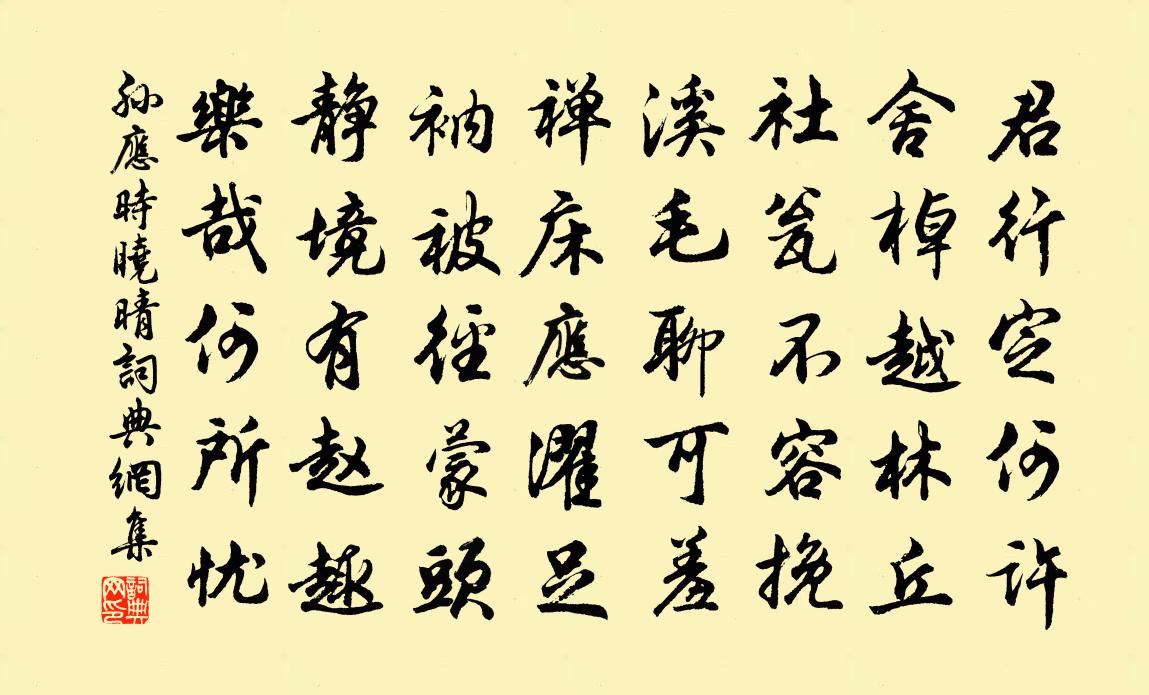 君行定何许
舍棹越林丘
社瓮不容挽
溪毛聊可羞
禅床應濯足
衲被径蒙頭
静境有赵趣
樂哉何所忧
孙應時曉晴詞典網集
詞典
网印